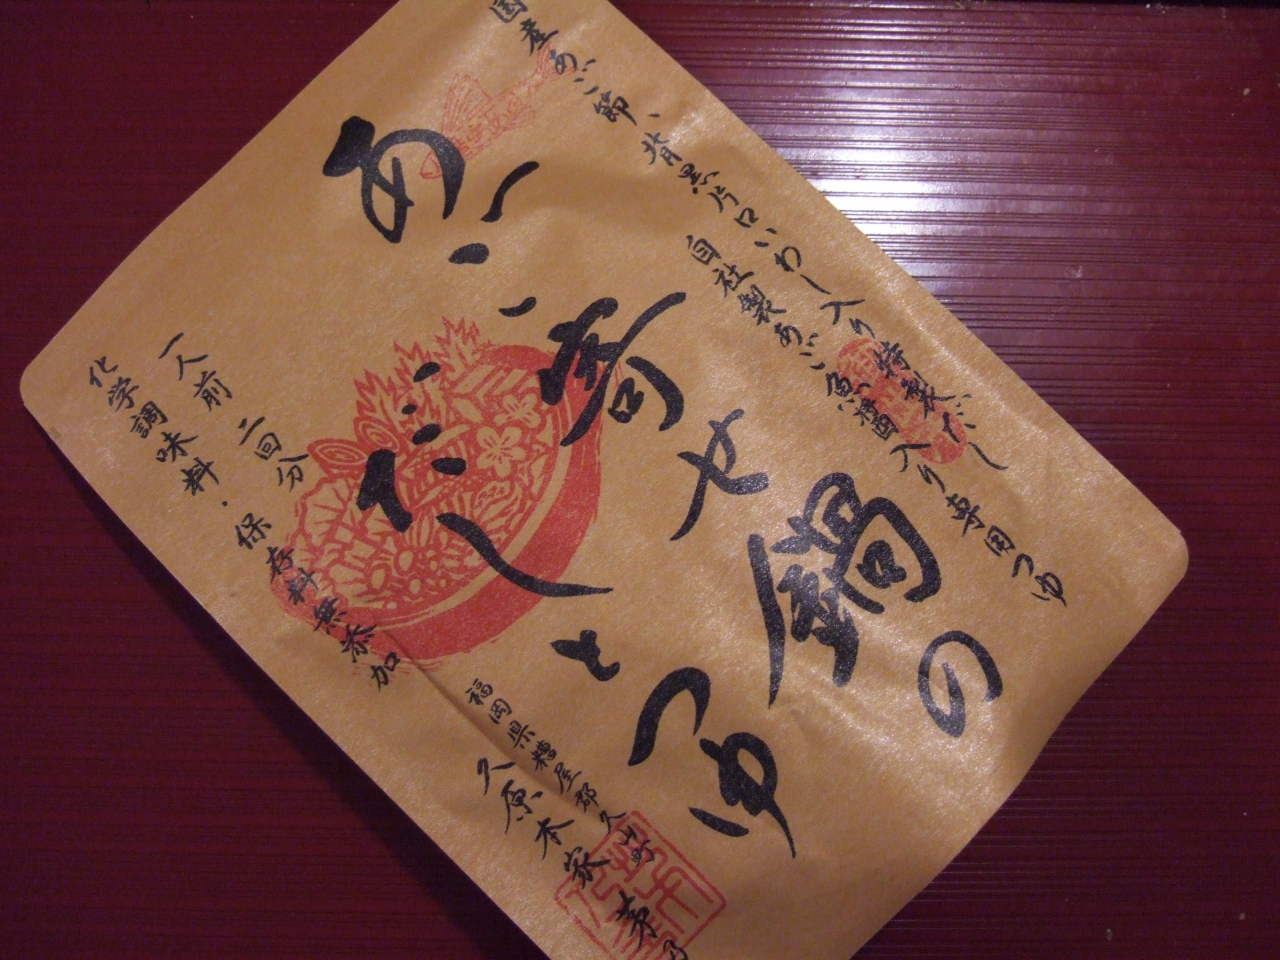 国産あご節、背黒片口いわし入り特製だし
自社製あご魚醤入り専用つゆ
あご寄せ鍋の
だしとつゆ
一人前 二回分
化学調味料・保存料無添加
福岡県糟屋郡久山町
久原本家 茅乃